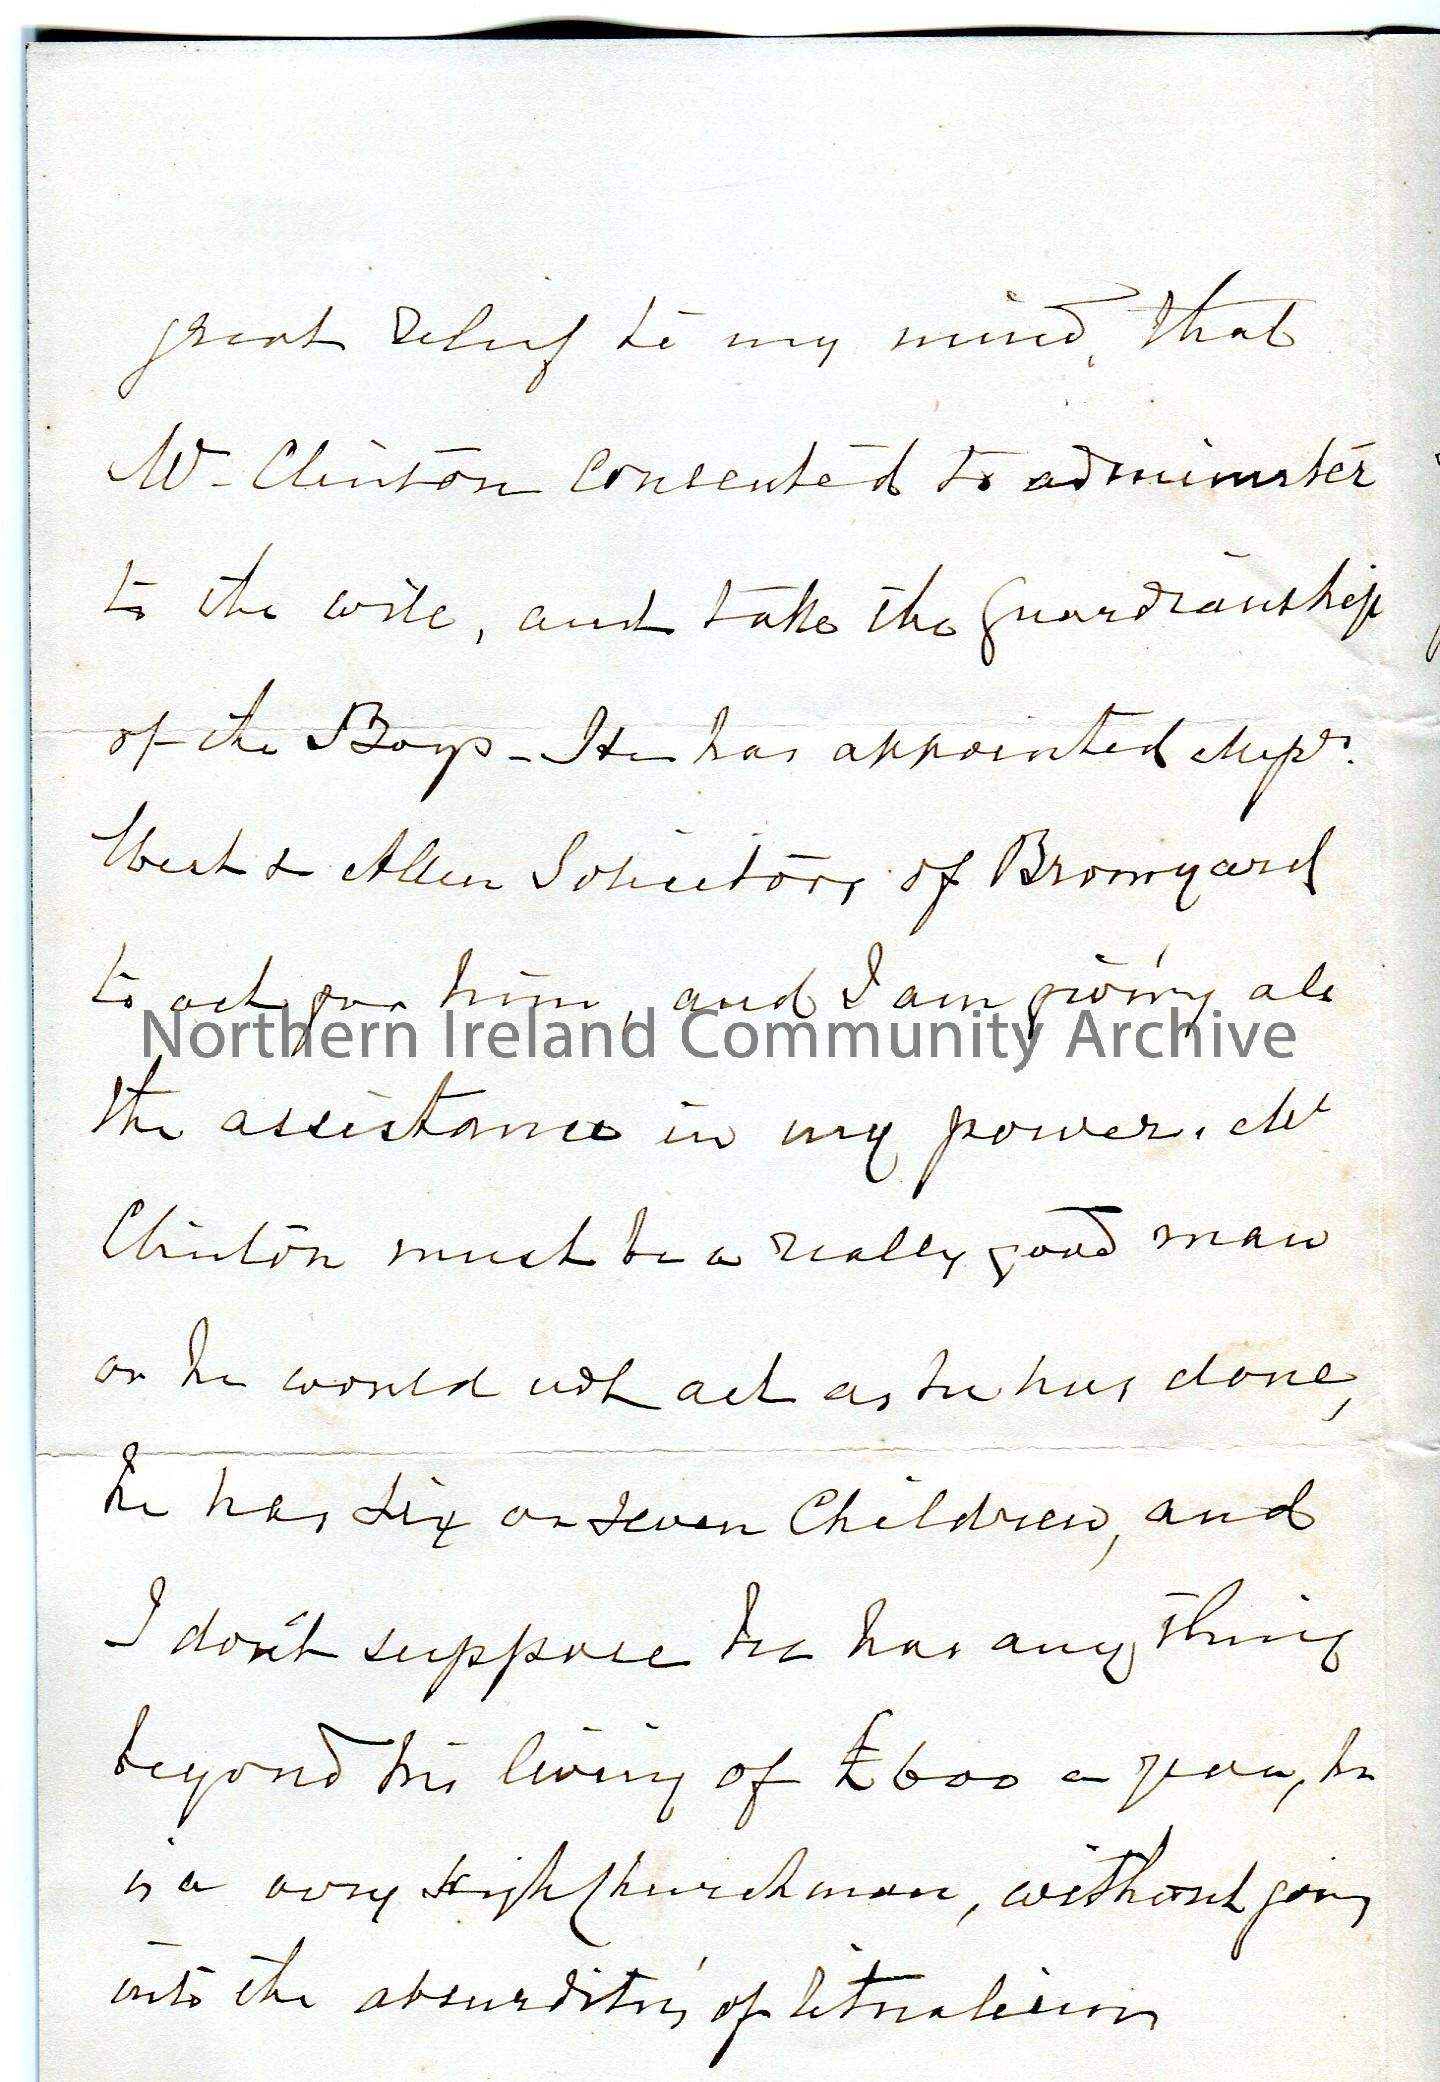 great relief to my mind, that
Mr Clinton consented to administer
to the will, and take the guardianship
of the Boys - He has appointed Messrs.
West & Allen Solicitors of Bromyard
to act for him, and I am giving all
Northern Ireland Community Archive
the assistance in my power. Mr
Clinton must be a really good man
or he would not act as he has done,
he has six or seven Children, and
I don't suppose he has any thing
beyond his living of £600 a year, he
is a very High Churchman, without going
into the absurdities of ritualism